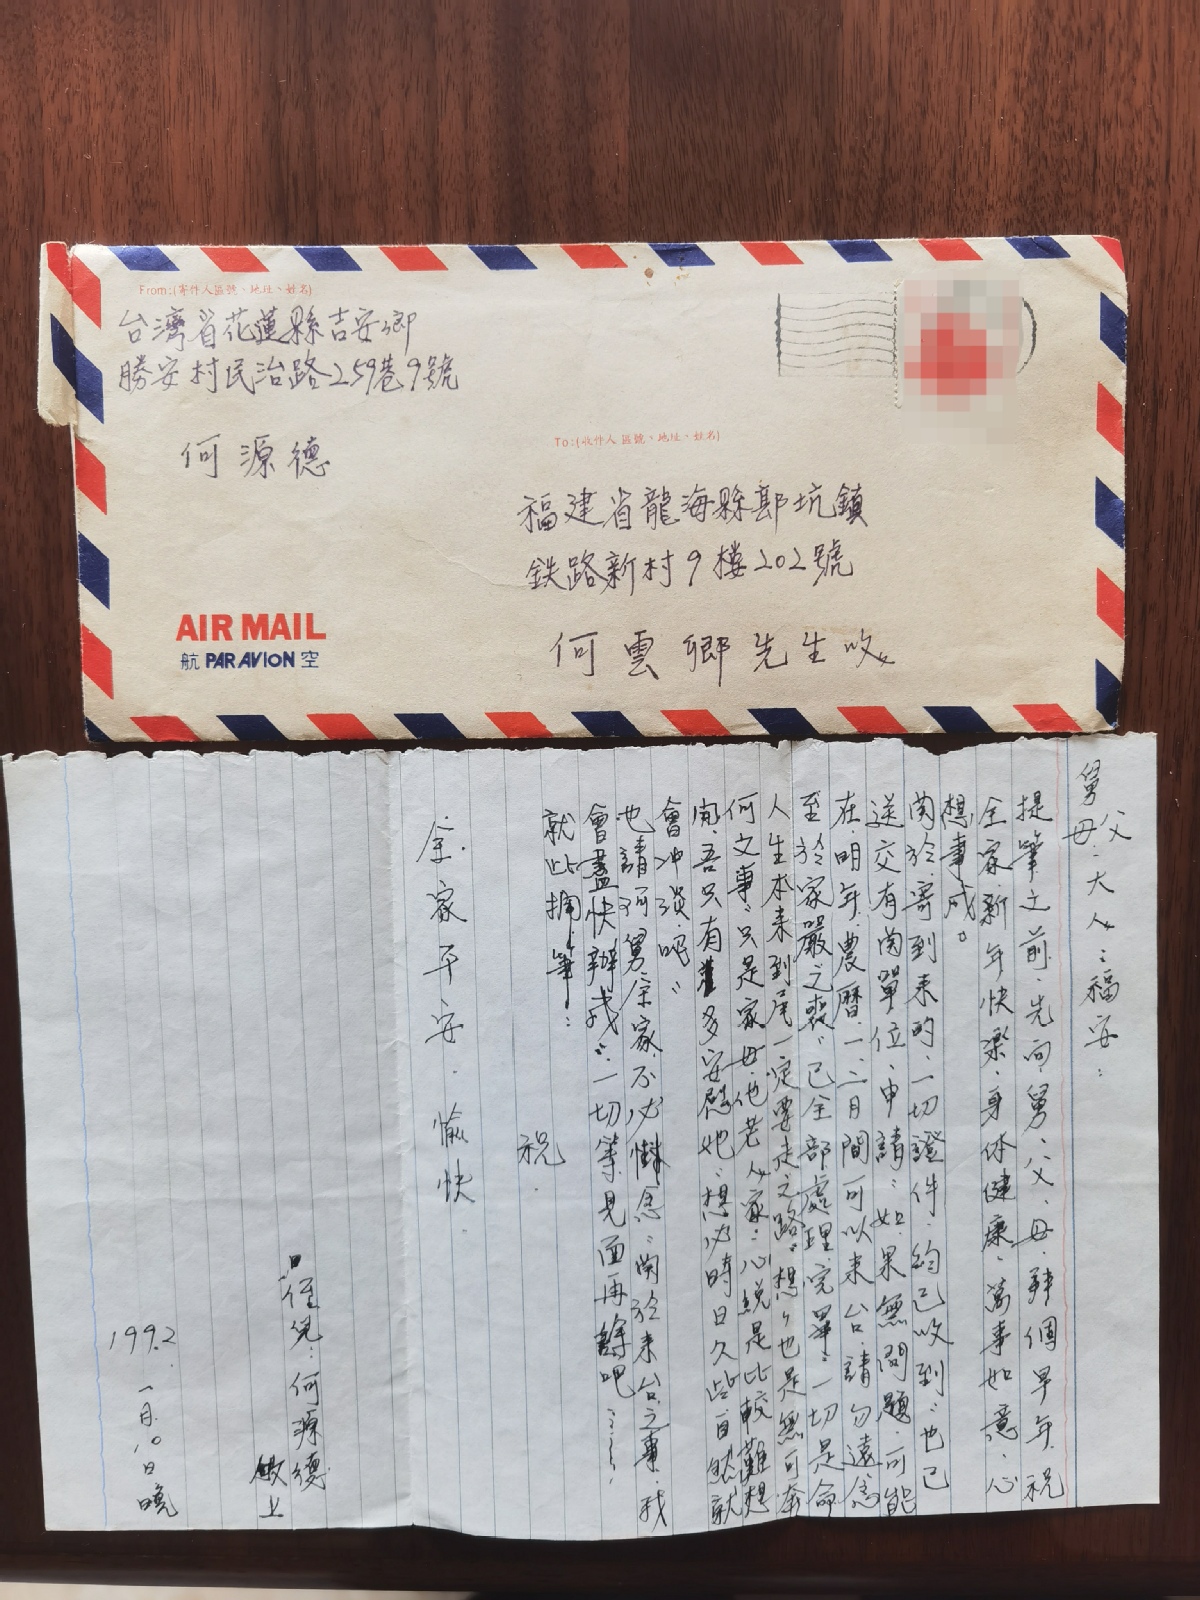 From:(寄件人區號、地址、姓名)
台灣省花蓮縣吉安鄉
勝安村民治路259巷9號
何源德
To:(收件人區號、地址、姓名)
福建省龍海縣郭坑鎮
鉄路新村9樓202號
何雲鄉先生收
AIR MAIL
航 PAR AVION 空
舅父母.大人:福安:
提筆之前.先向.舅.父.母.拜個早年.祝
全家.新年快樂.身体健康.萬事如意.心
想事成。
関於.寄到来的.一切證件.約已收到.也已
送交有関單位.申請.如果無問題.可能
在.明年.農曆.一.二月間可以来台.請勿遠念
至於家嚴之喪.已全部處理完畢.一切是命
人生本来到尾一定要走之路.想々也是無可奈
何之事.只是家母.他老人家.心績是比較難想
開.吾只有多安慰她.想必時日久些自然就
會冲淡吧.
也請.舅.全家.不必掛念.関於来台之事.我
會盡快辦成.一切等見面再詳吧......
就此擱筆:
祝
全.家平安.愉快.
侄兒:何源德
敬上
1992.一月.10日晚